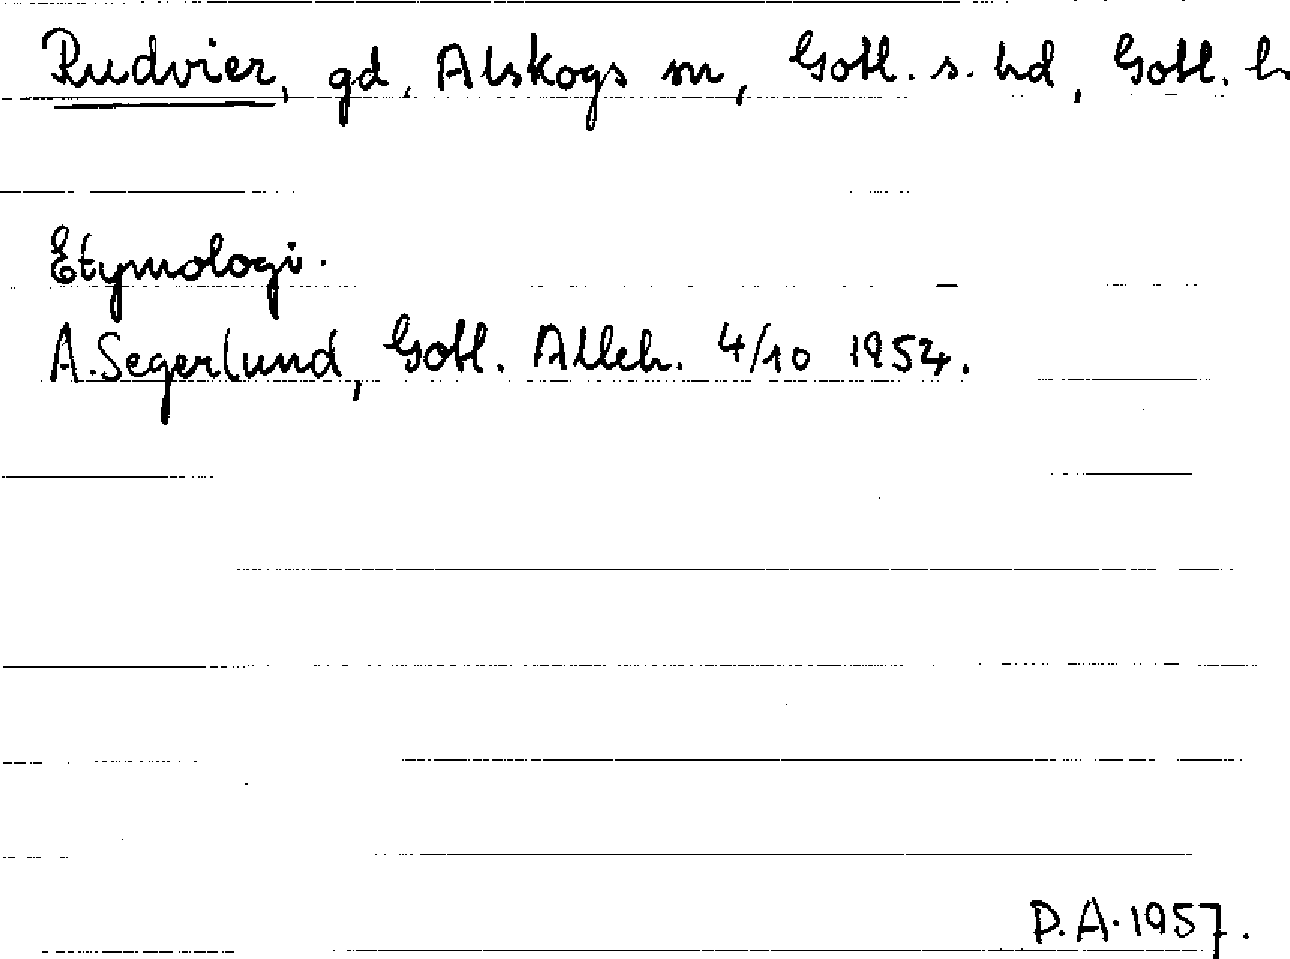 Rudvier, gd, Alskogs sn, Gotl. s. hd, Gotl. l.
Etymologi.
A. Segerlund, Gotl. Alleh. 4/10 1954.
D.A. 1957.